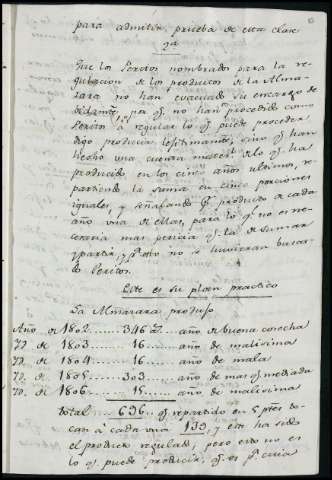 para admitir prueba de esta clase
2ª
Que los Peritos nombrados para la re-
gulacion de los productos de la Alma-
zara no han evacuado su encargo de
por q.ᵉ no han procedido como
Peritos à regular lo q.ᵉ puede proceder
digo producir lexitimamᵗᵉ, sino q.ᵉ han
hecho una cuenta de lo q.ᵉ ha
producido en los cinco años ultimos, re-
partiendo la suma en cinco porciones
iguales, y señalando p.ʳ producto de cada
año una de ellas, para lo q.ᵉ no es ne-
cesaria mas pericia q.ᵉ la de sumar
y partir, y p.ª esto no se huvieran busca-
do Peritos.
Este es su plan practico
La Almazara produjo
Año de 1802 346 año de buena cosecha
Yd. de 1803 16 año de malisima
Yd. de 1804 16 año de mala
Yd. de 1805 303 año de mas q.ᵉ mediada
Yd. de 1806 15 año de malisima
total 696 q.ᵉ repartido en 5 p.ᵗᵉˢ to-
can à cada una 139 y este ha sido
el producto regulado, pero esto no es
lo q.ᵉ puede producir, q.ᵉ es p.ª cuia